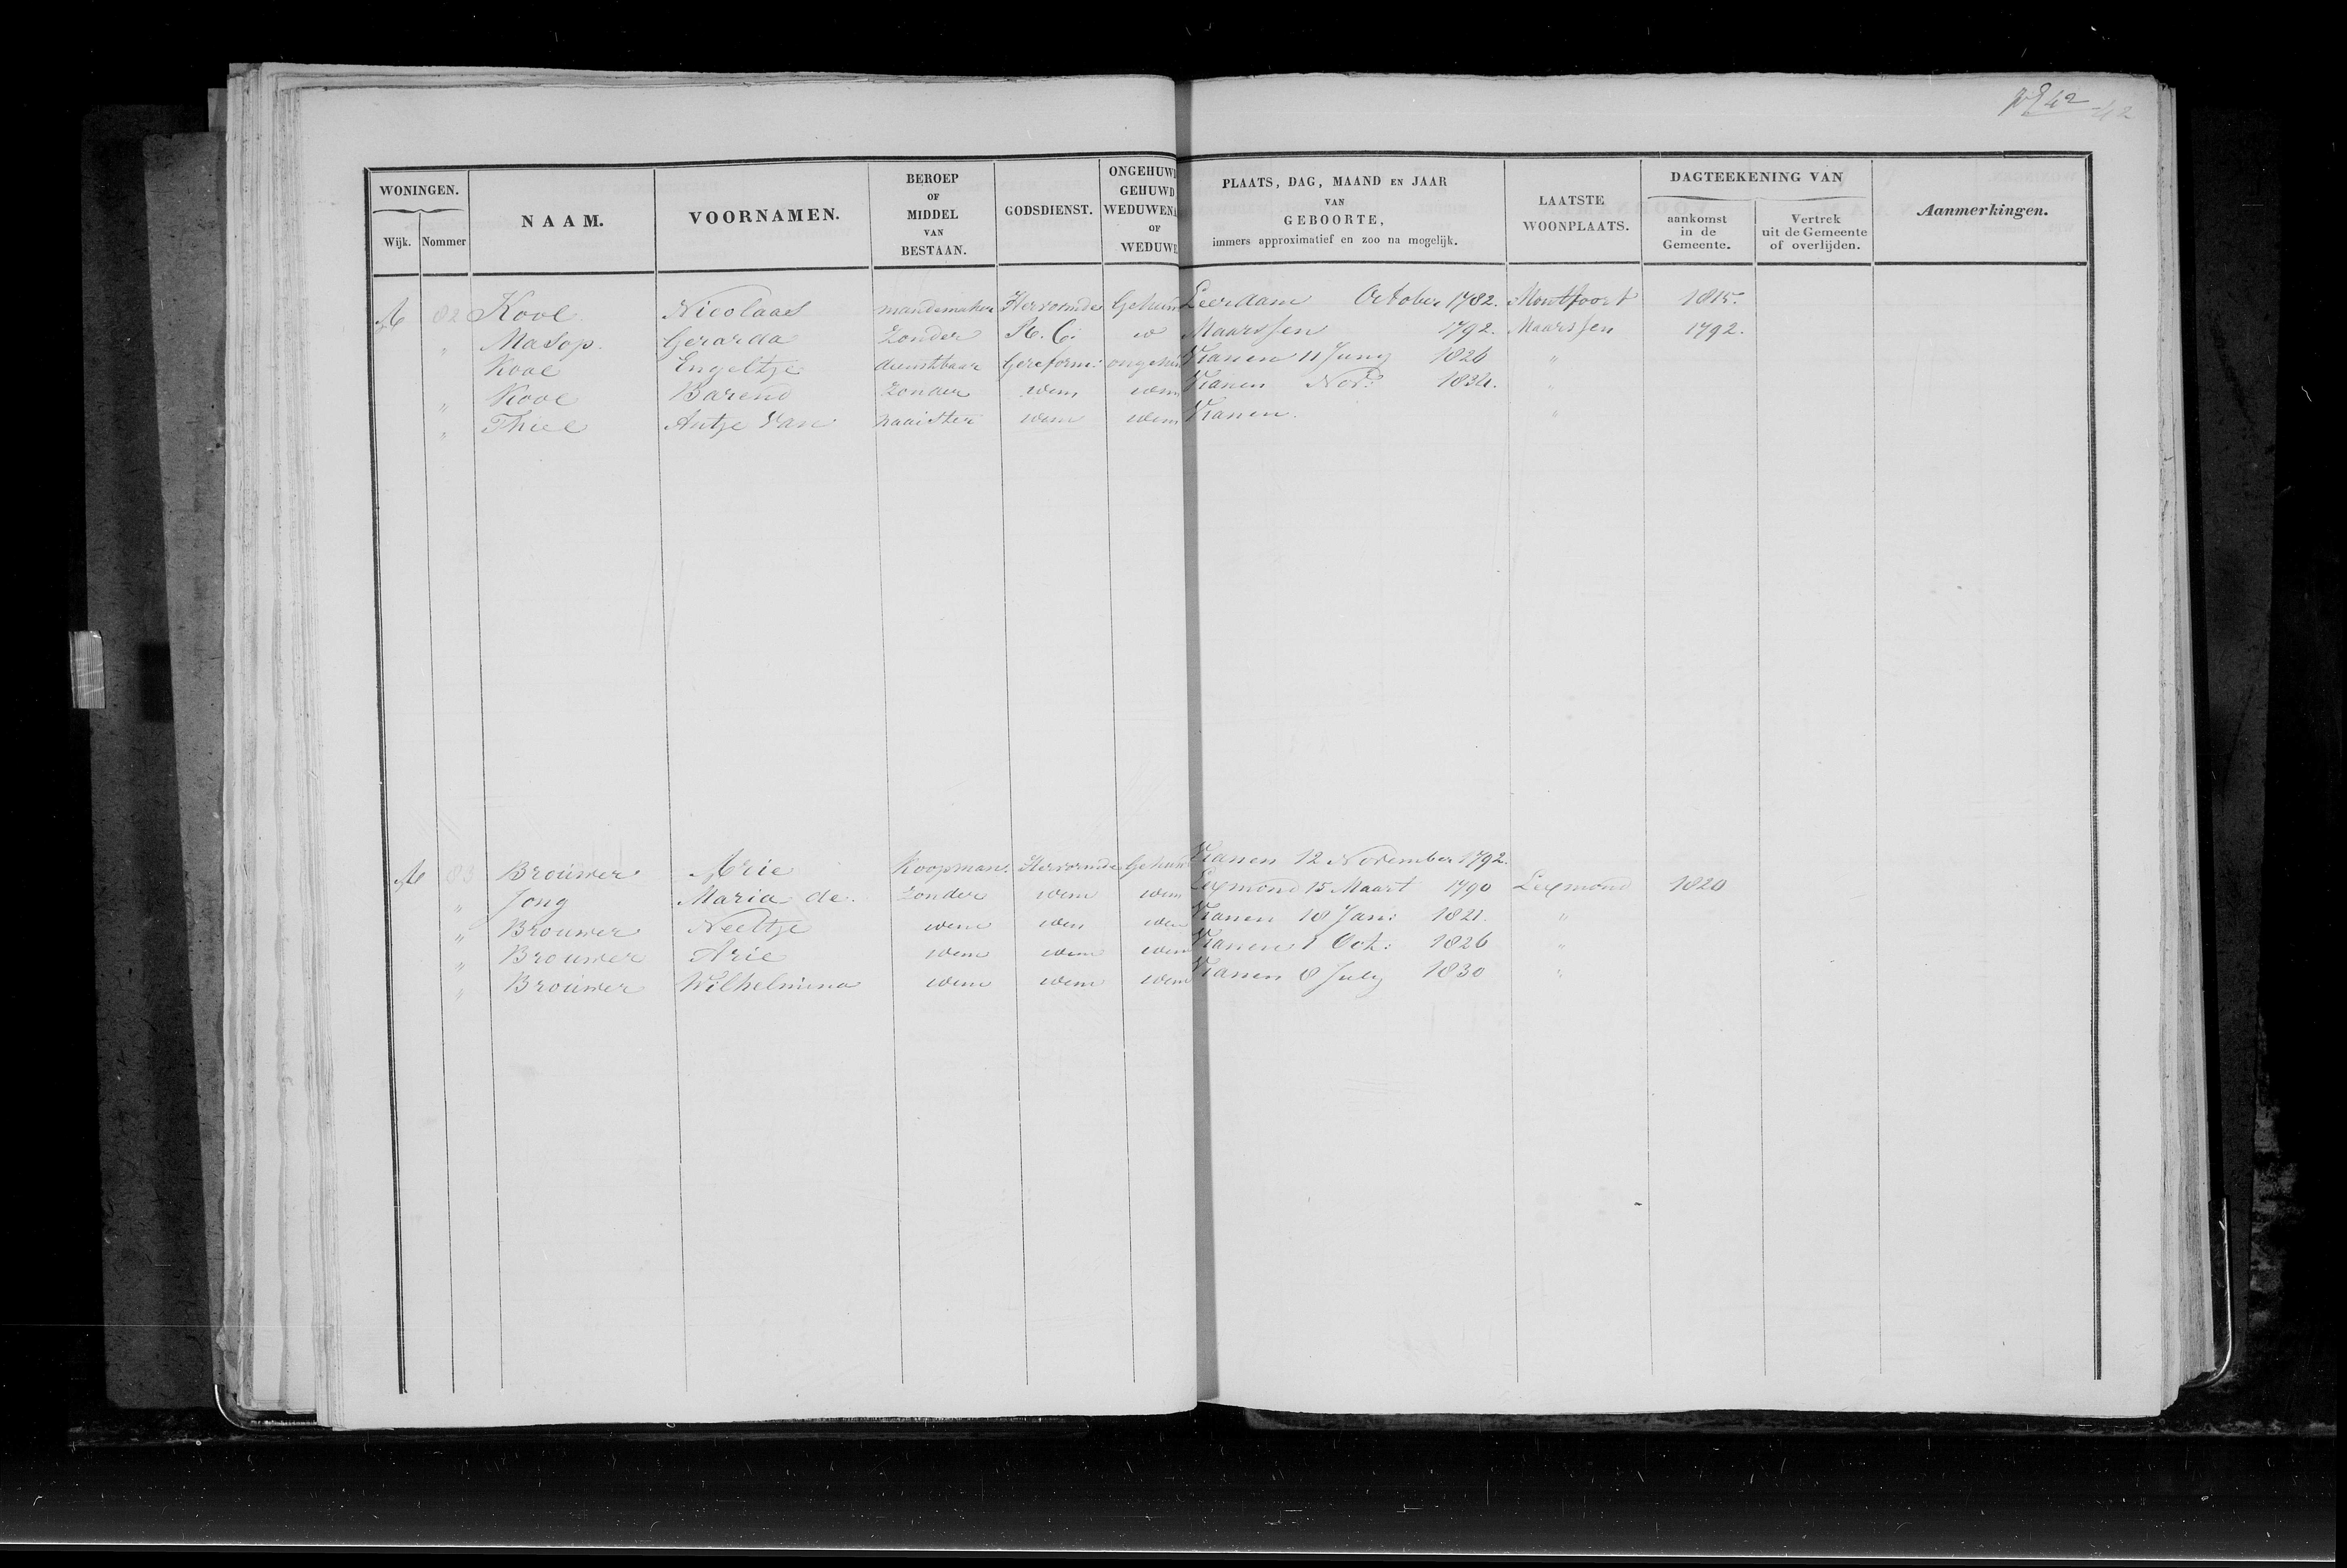 42
WONINGEN. NAAM. VOORNAMEN. BEROEP OF MIDDEL VAN BESTAAN. GODSDIENST. ONGEHUWD GEHUWD WEDUWENA OF WEDUWE PLAATS, DAG, MAAND EN JAAR VAN GEBOORTE, immers approximatief en zoo na mogelijk. LAATSTE WOONPLAATS. DAGTEEKENING VAN Aanmerkingen.
Wijk. Nommer aankomst in de Gemeente. Vertrek uit de Gemeente of overlijden.
A 82 Kool Nicolaas mandemaker Hervormde Gehuw Leerdam October 1782. Montfoort 1815.
" Masop. Gerarda Zonder R. C. Maarssen 1792. Maarssen 1792.
Kool Engeltje dienstbaar Gereform: ongehu Vianen 11 Juny 1826 "
" Kool Barend Zonder idem idem Vianen Nov: 1834. "
" Thiel Antje Van naaister idem idem Vianen. "
A 83 Brouwer Arie Koopman. Hervormde Gehuw Vianen 12 November 1792.
" Jong Maria de. Zonder idem idem Lexmond 15 Maart 1790 Lexmond 1820
" Brouwer Neeltje idem idem idem Vianen 18 Jan: 1821. "
" Brouwer Arie idem idem idem Vianen 1 Oct: 1826 "
" Brouwer Wilhelmina idem idem idem Vianen 8 July 1830 "